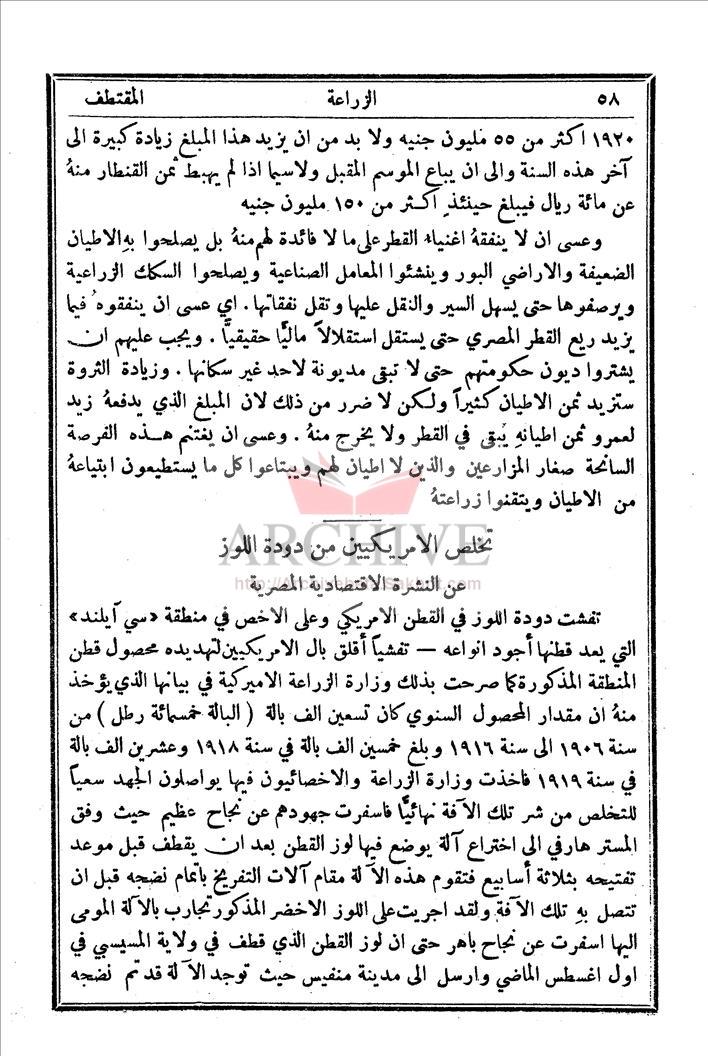 ٥٨ الزراعة المقتطف
١٩٢٠ اكثر من ٥٥ مليون جنيه ولا بد من ان يزيد هذا المبلغ زيادة كبيرة الى
آخر هذه السنة والى ان يباع الموسم المقبل ولاسيما اذا لم يهبط ثمن القنطار منهُ
عن مائة ريال فيبلغ حينئذٍ اكثر من ١٥٠ مليون جنيه
وعسى ان لا ينفقهُ اغنياء القطر على ما لا فائدة لهم منهُ بل يصلحوا بهِ الاطيان
الضعيفة والاراضي البور وينشئوا المعامل الصناعية ويصلحوا السكك الزراعية
ويرصفوها حتى يسهل السير والنقل عليها وتقل نفقاتها . اي عسى ان ينفقوهُ فيما
يزيد ريع القطر المصري حتى يستقل استقلالاً ماليًّا حقيقيًّا . ويجب عليهم ان
يشتروا ديون حكومتهم حتى لا تبقى مديونة لاحد غير سكانها . وزيادة الثروة
ستزيد ثمن الاطيان كثيراً ولكن لا ضرر من ذلك لان المبلغ الذي يدفعهُ زيد
لعمرو ثمن اطيانهِ يُبقى في القطر ولا يخرج منهُ . وعسى ان يغتنم هذه الفرصة
السانحة صغار المزارعين والذين لا اطيان لهم ويبتاعوا كل ما يستطيعون ابتياعهُ
من الاطيان ويتقنوا زراعتهُ
ARCHIVE
تخلص الامريكيين من دودة اللوز
عن النشرة الاقتصادية المصرية
تفشت دودة اللوز في القطن الامريكي وعلى الاخص في منطقة «سي آيلند»
التي يعد قطنها أجود انواعه — تفشياً أقلق بال الامريكيين لتهديده محصول قطن
المنطقة المذكورة كما صرحت بذلك وزارة الزراعة الاميركية في بيانها الذي يؤخذ
منهُ ان مقدار المحصول السنوي كان تسعين الف بالة ( البالة خمسمائة رطل ) من
سنة ١٩٠٦ الى سنة ١٩١٦ وبلغ خمسين الف بالة في سنة ١٩١٨ وعشرين الف بالة
في سنة ١٩١٩ فاخذت وزارة الزراعة والاخصائيون فيها يواصلون الجهد سعياً
للتخلص من شر تلك الآفة نهائيًّا فاسفرت جهودهم عن نجاح عظيم حيث وفق
المستر هارفي الى اختراع آلة يوضع فيها لوز القطن بعد ان يقطف قبل موعد
تفتيحه بثلاثة أسابيع فتقوم هذه الآلة مقام آلات التفريخ باتمام نضجه قبل ان
تتصل بهِ تلك الآفة ولقد اجريت على اللوز الاخضر المذكور تجارب بالآلة المومى
اليها اسفرت عن نجاح باهر حتى ان لوز القطن الذي قطف في ولاية المسيسبي في
اول اغسطس الماضي وارسل الى مدينة منفيس حيث توجد الآلة قد تم نضجه